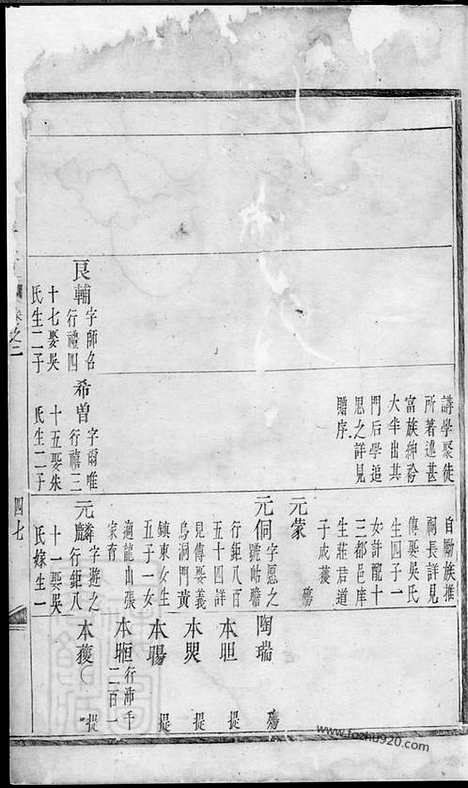 講學聚徒
所著述甚
富族紳衿
大半出其
門后學追
思之詳見
贈序
自勵族推
祠長詳見
傳娶吳氏
生四子一
女許龍十
三都邑庠
生莊君道
子成蔭
元蒙 殤
元侗 字愿之
號帖瞻
行鉅八百
五十四詳
見傳娶義
烏洞門黃
鎮東女生
五子一女
適龍山張
家育
陶瑞 殤
本胆 提
本煚 提
本腸 提
本𣈶 行沛千
二百一
良輔 字師名
行禮四
十七娶吳
氏生二子
希曾 字爾唯
行禧三
十五娶朱
氏生二子
元麟 字遊之
行鉅八
十一娶吳
氏嫁生一
本蒦 提
卷之二
四七
www.fozhu920.com